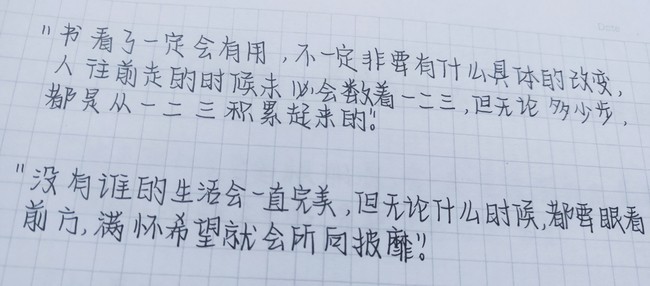 "书看了一定会有用，不一定非要有什么具体的改变，
人往前走的时候未必会数着一二三，但无论多少步，
都是从一二三积累起来的。"
"没有谁的生活会一直完美，但无论什么时候，都要眼看
前方，满怀希望就会所向披靡。"